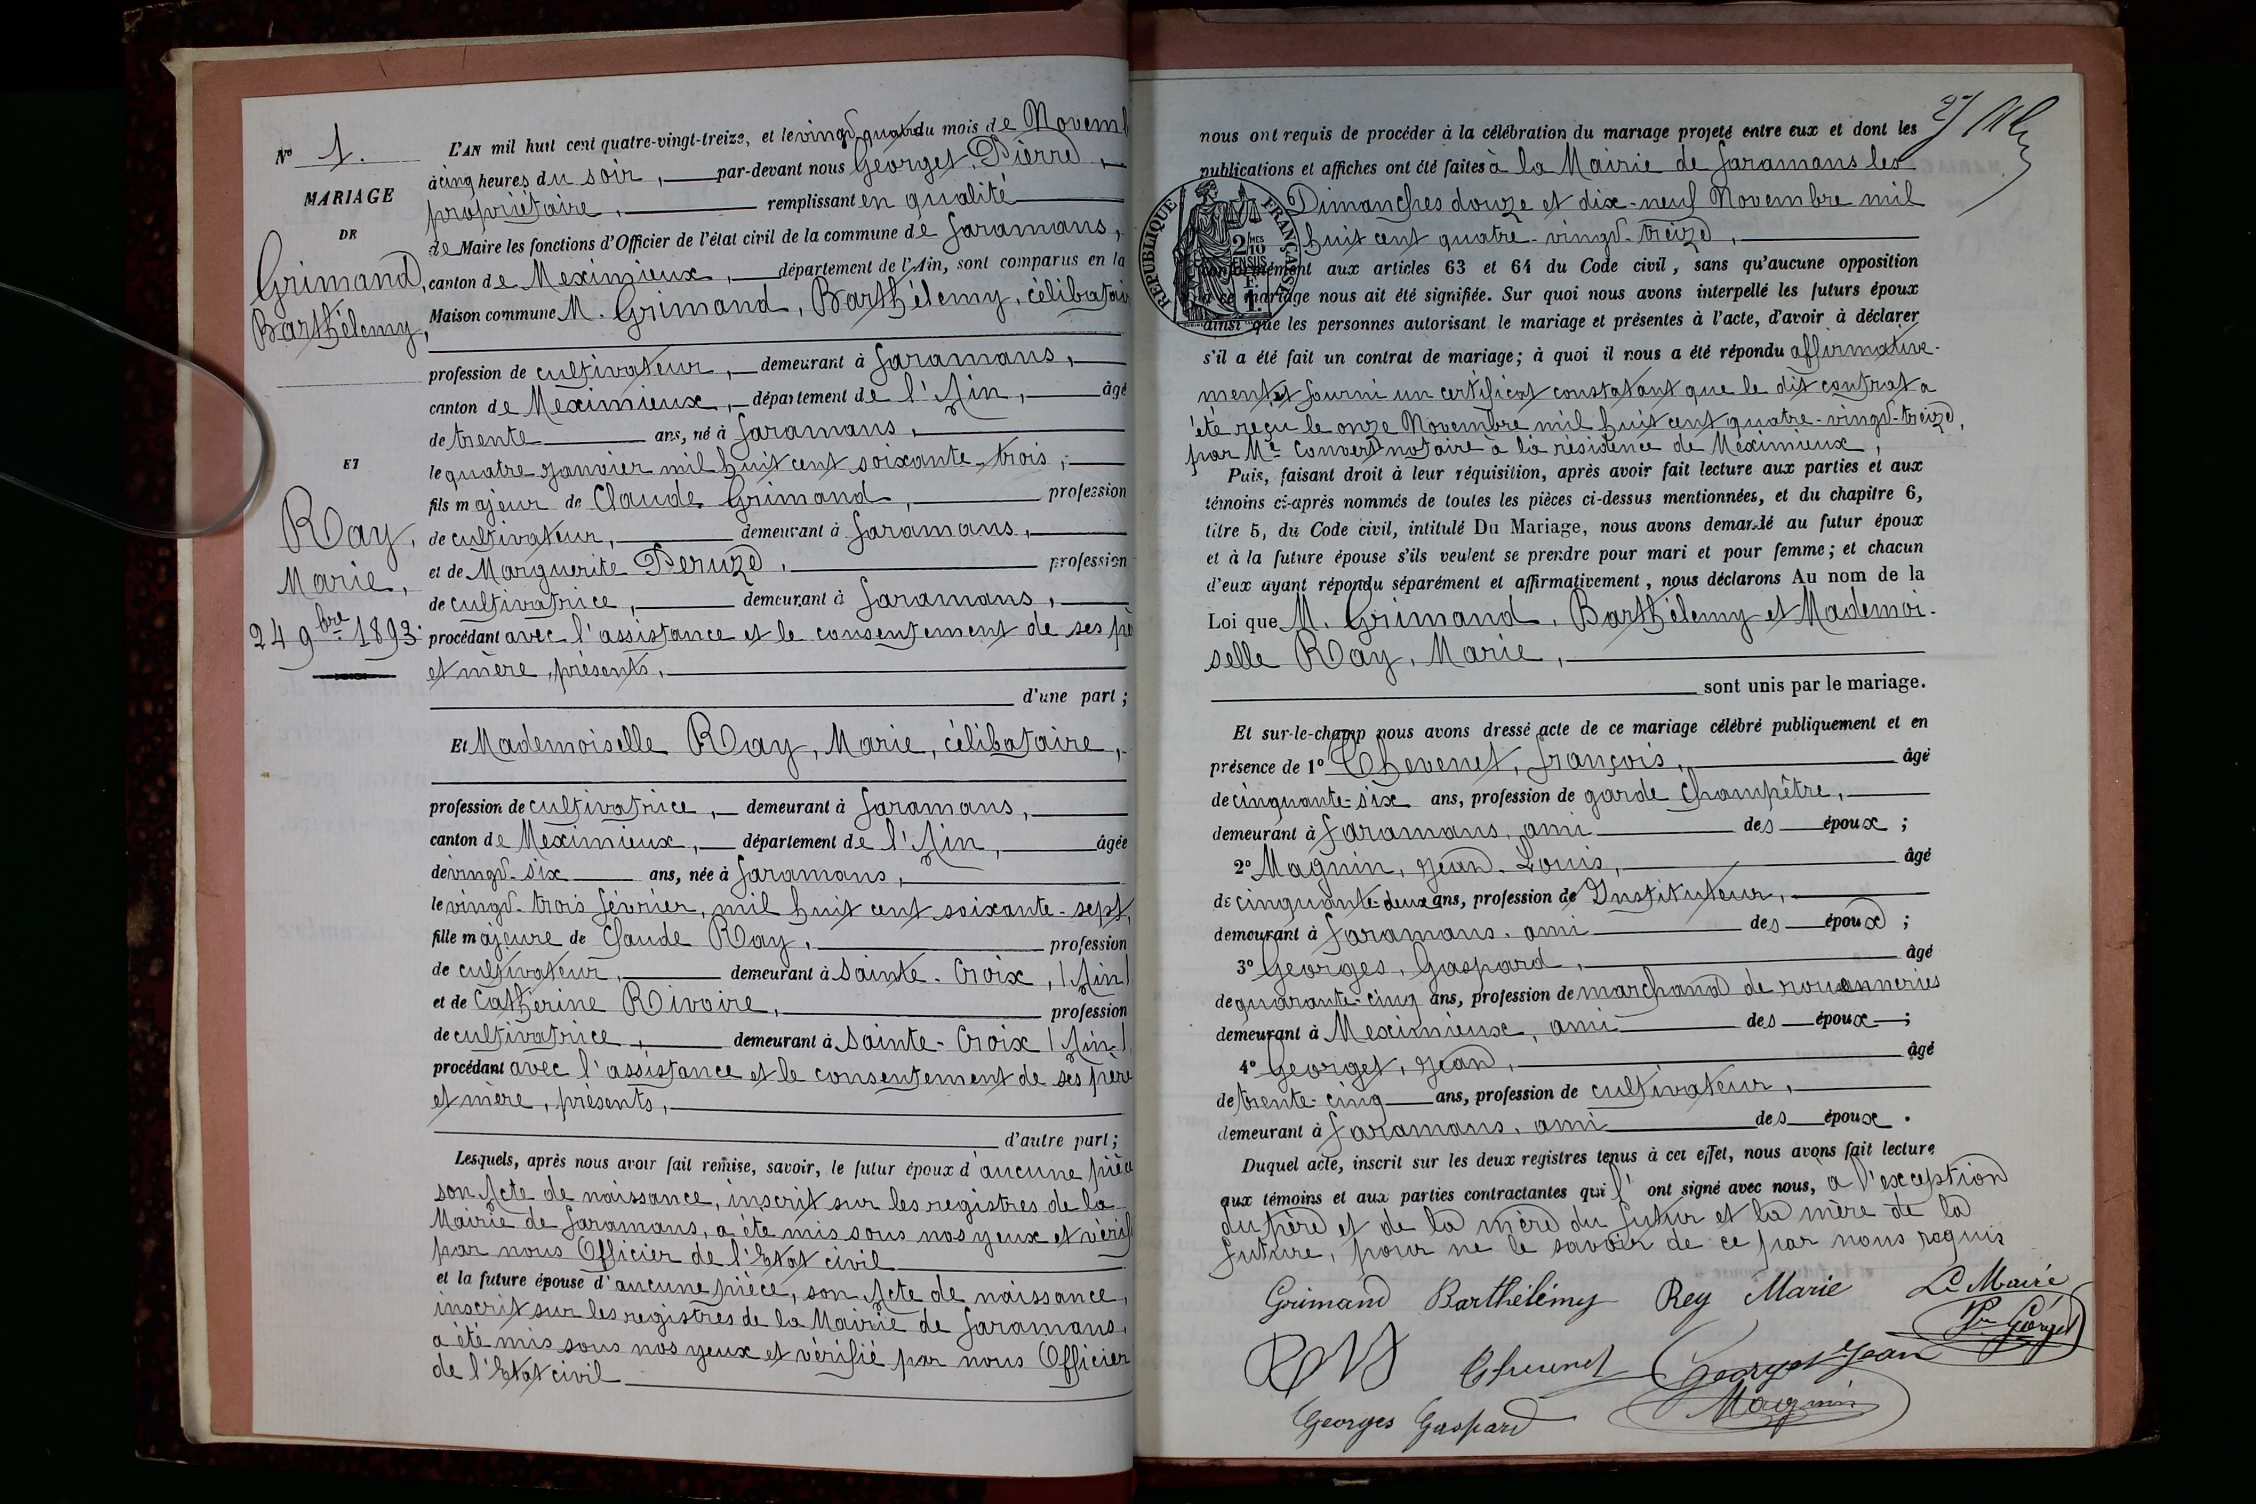 N° 1.
MARIAGE
DE
Grimand,
Barthélemy,
ET
Ray,
Marie,
24 9bre 1893.
L'AN mil huit cent quatre-vingt-treize, et le vingt-quatre du mois de Novemb
à cinq heures du soir, par-devant nous Georget, Pierre,
propriétaire, remplissant en qualité
de Maire les fonctions d'Officier de l'état civil de la commune de Faramans,
canton de Meximieux, département de l'Ain, sont comparus en la
Maison commune M. Grimand, Barthélemy, célibatair
profession de cultivateur, demeurant à Faramans,
canton de Meximieux, département de l'Ain, âgé
de trente ans, né à Faramans,
le quatre Janvier mil huit cent soixante-trois,
fils majeur de Claude Grimand, profession
de cultivateur, demeurant à Faramans,
et de Marguerite Peruze, profession
de cultivatrice, demeurant à Faramans,
procédant avec l'assistance et le consentement de ses pè
et mère, présents,
d'une part ;
Et Mademoiselle Ray, Marie, célibataire,
profession de cultivatrice, demeurant à Faramans,
canton de Meximieux, département de l'Ain, âgée
de vingt-six ans, née à Faramans,
le vingt-trois février, mil huit cent soixante-sept,
fille majeure de Claude Ray, profession
de cultivateur, demeurant à Sainte-Croix, (Ain)
et de Catherine Rivoire, profession
de cultivatrice, demeurant à Sainte-Croix (Ain)
procédant avec l'assistance et le consentement de ses père
et mère, présents,
d'autre part ;
Lesquels, après nous avoir fait remise, savoir, le futur époux d'aucune pièce
son Acte de naissance, inscrit sur les registres de la
Mairie de Faramans, a été mis sous nos yeux et vérifi
par nous Officier de l'Etat civil
et la future épouse d'aucune pièce, son Acte de naissance,
inscrit sur les registres de la Mairie de Faramans,
a été mis sous nos yeux et vérifié par nous Officier
de l'Etat civil
nous ont requis de procéder à la célébration du mariage projeté entre eux et dont les
publications et affiches ont été faites à la Mairie de Faramans les
Dimanches douze et dix-neuf Novembre mil
huit cent quatre-vingt-treize,
conformément aux articles 63 et 64 du Code civil, sans qu'aucune opposition
à ce mariage nous ait été signifiée. Sur quoi nous avons interpellé les futurs époux
ainsi que les personnes autorisant le mariage et présentes à l'acte, d'avoir à déclarer
s'il a été fait un contrat de mariage ; à quoi il nous a été répondu affirmative-
ment et fourni un certificat constatant que le dit contrat a
été reçu le onze Novembre mil huit cent quatre-vingt-treize,
par Me Convert notaire à la résidence de Meximieux,
Puis, faisant droit à leur réquisition, après avoir fait lecture aux parties et aux
témoins ci-après nommés de toutes les pièces ci-dessus mentionnées, et du chapitre 6,
titre 5, du Code civil, intitulé Du Mariage, nous avons demandé au futur époux
et à la future épouse s'ils veulent se prendre pour mari et pour femme ; et chacun
d'eux ayant répondu séparément et affirmativement, nous déclarons Au nom de la
Loi que M. Grimand, Barthélemy et Mademoi-
selle Ray, Marie,
sont unis par le mariage.
Et sur-le-champ nous avons dressé acte de ce mariage célébré publiquement et en
présence de 1° Chevenet, François, âgé
de cinquante-six ans, profession de garde champêtre,
demeurant à Faramans, ami des époux ;
2° Magnin, Jean-Louis, âgé
de cinquante-deux ans, profession de Instituteur,
demeurant à Faramans, ami des époux ;
3° Georges, Gaspard, âgé
de quarante-cinq ans, profession de marchand de rouenneries
demeurant à Meximieux, ami des époux ;
4° Georget, Jean, âgé
de trente-cinq ans, profession de cultivateur,
demeurant à Faramans, ami des époux.
Duquel acte, inscrit sur les deux registres tenus à cet effet, nous avons fait lecture
aux témoins et aux parties contractantes qui l'ont signé avec nous, à l'exception
du père et de la mère du futur et la mère de la
future, pour ne le savoir de ce par nous requis
Grimand Barthélémy Rey Marie Le Maire
Pre Géorget
Chevenet Georget Jean
Georges Gaspard Magnin
RÉPUBLIQUE FRANÇAISE
2/10 MES
EN SUS
1 F.